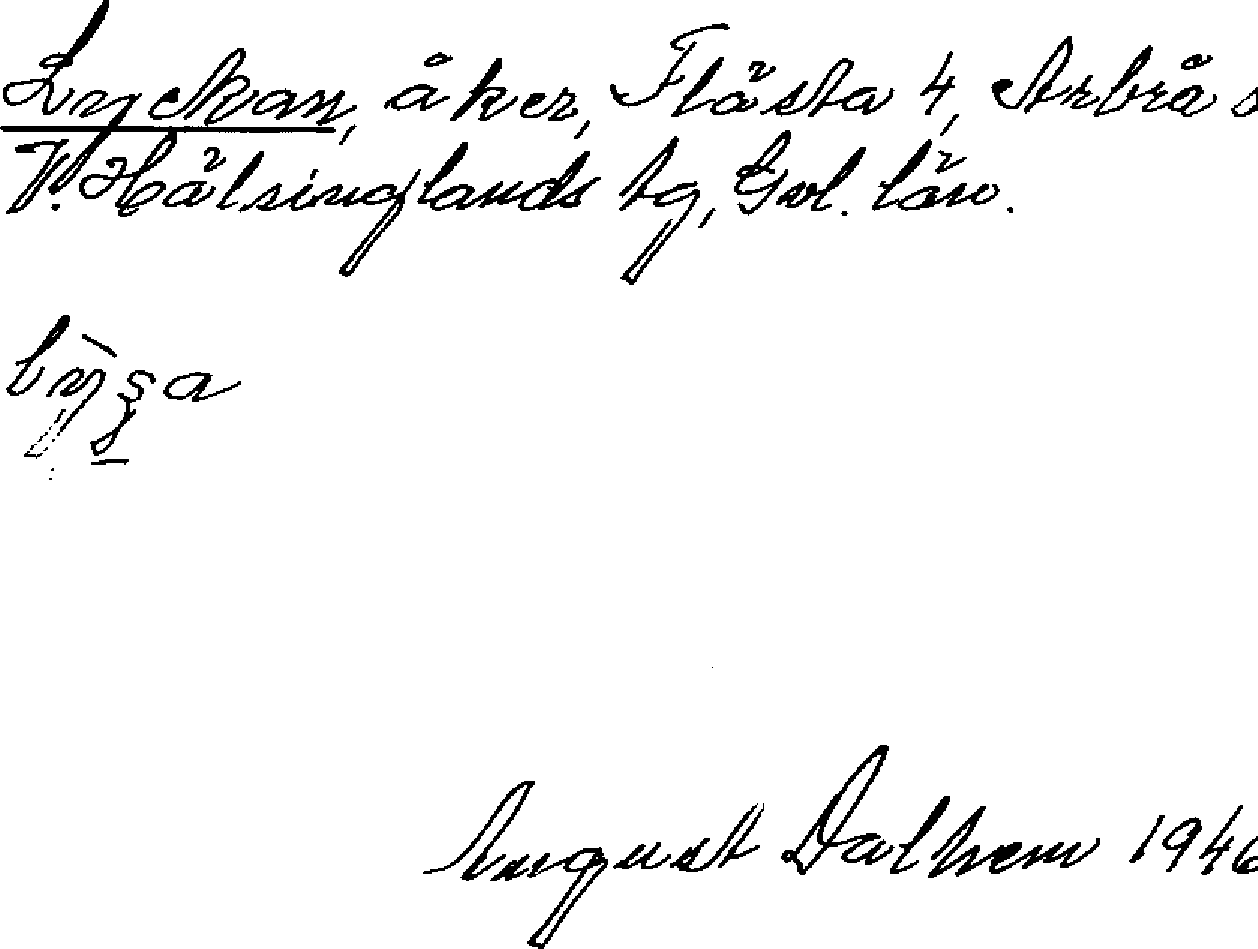 Lyckan, åker, Flästa 4, Arbrå s
V. Hälsinglands tg, Gvl. län.
August Dalhem 1946